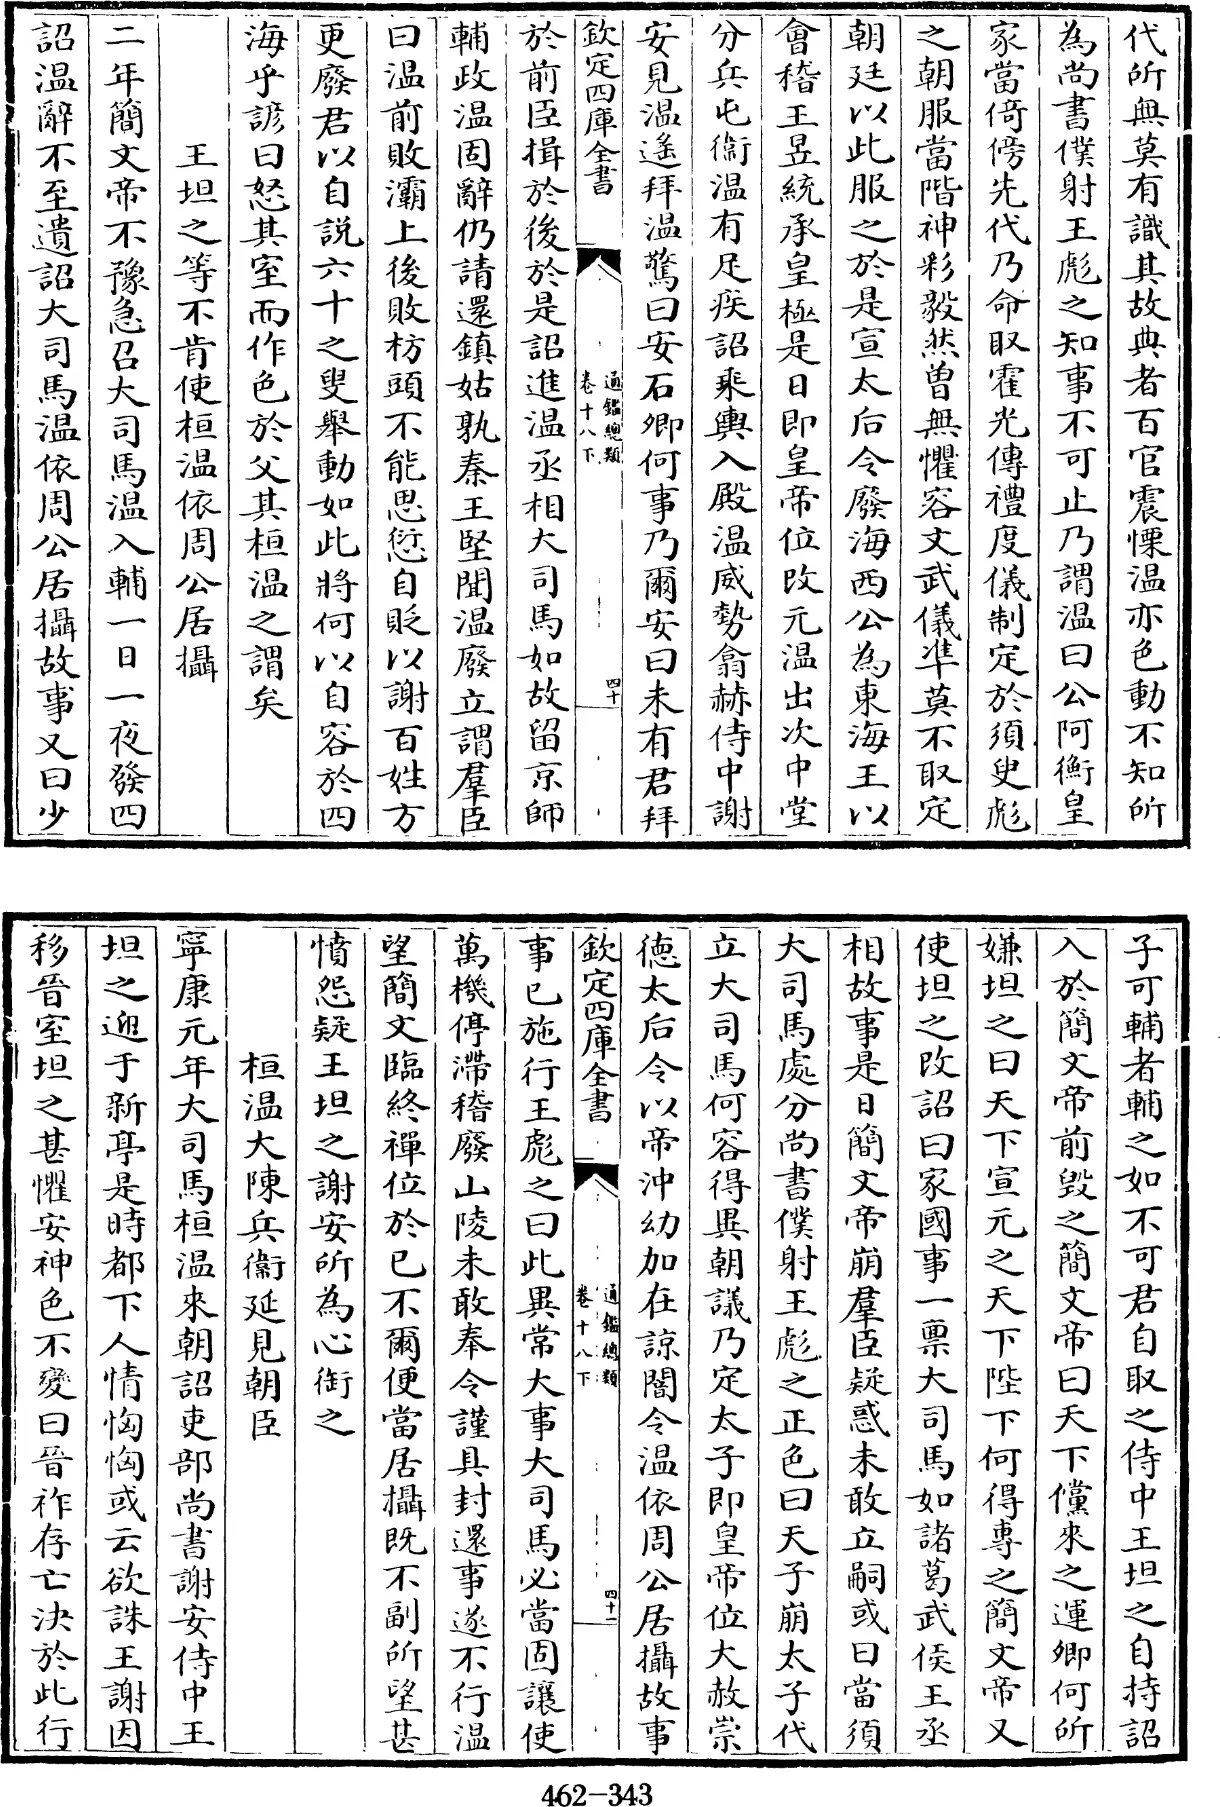 代所無莫有識其故典者百官震慄溫亦色動不知所
為尚書僕射王彪之知事不可止乃謂溫曰公阿衡皇
家當倚傍先代乃命取霍光傳禮度儀制定於須臾彪
之朝服當階神彩毅然曽無懼容文武儀凖莫不取定
朝廷以此服之於是宣太后令廢海西公為東海王以
會稽王昱統承皇極是日即皇帝位改元溫出次中堂
分兵屯衞溫有足疾詔乘輿入殿溫威勢翕赫侍中謝
安見溫遙拜溫驚曰安石卿何事乃爾安曰未有君拜
欽定四庫全書
通鑑總類
卷十八下
四十
於前臣揖於後於是詔進溫丞相大司馬如故留京師
輔政溫固辭仍請還鎮姑孰秦王堅聞溫廢立謂羣臣
曰溫前敗灞上後敗枋頭不能思愆自貶以謝百姓方
更廢君以自説六十之叟舉動如此將何以自容於四
海乎諺曰怒其室而作色於父其桓溫之謂矣
王坦之等不肯使桓溫依周公居攝
二年簡文帝不豫急召大司馬溫入輔一日一夜發四
詔溫辭不至遺詔大司馬溫依周公居攝故事又曰少
子可輔者輔之如不可君自取之侍中王坦之自持詔
入於簡文帝前毀之簡文帝曰天下儻來之運卿何所
嫌坦之曰天下宣元之天下陛下何得專之簡文帝又
使坦之改詔曰家國事一禀大司馬如諸葛武侯王丞
相故事是日簡文帝崩羣臣疑惑未敢立嗣或曰當須
大司馬處分尚書僕射王彪之正色曰天子崩太子代
立大司馬何容得異朝議乃定太子即皇帝位大赦崇
德太后令以帝沖幼加在諒闇令溫依周公居攝故事
欽定四庫全書
通鑑總類
卷十八下
四十一
事已施行王彪之曰此異常大事大司馬必當固讓使
萬機停滯稽廢山陵未敢奉令謹具封還事遂不行溫
望簡文臨終禪位於已不爾便當居攝既不副所望甚
憤怨疑王坦之謝安所為心銜之
桓溫大陳兵衞延見朝臣
寧康元年大司馬桓溫來朝詔吏部尚書謝安侍中王
坦之迎于新亭是時都下人情恟恟或云欲誅王謝因
移晉室坦之甚懼安神色不變曰晉祚存亡決於此行
462-343